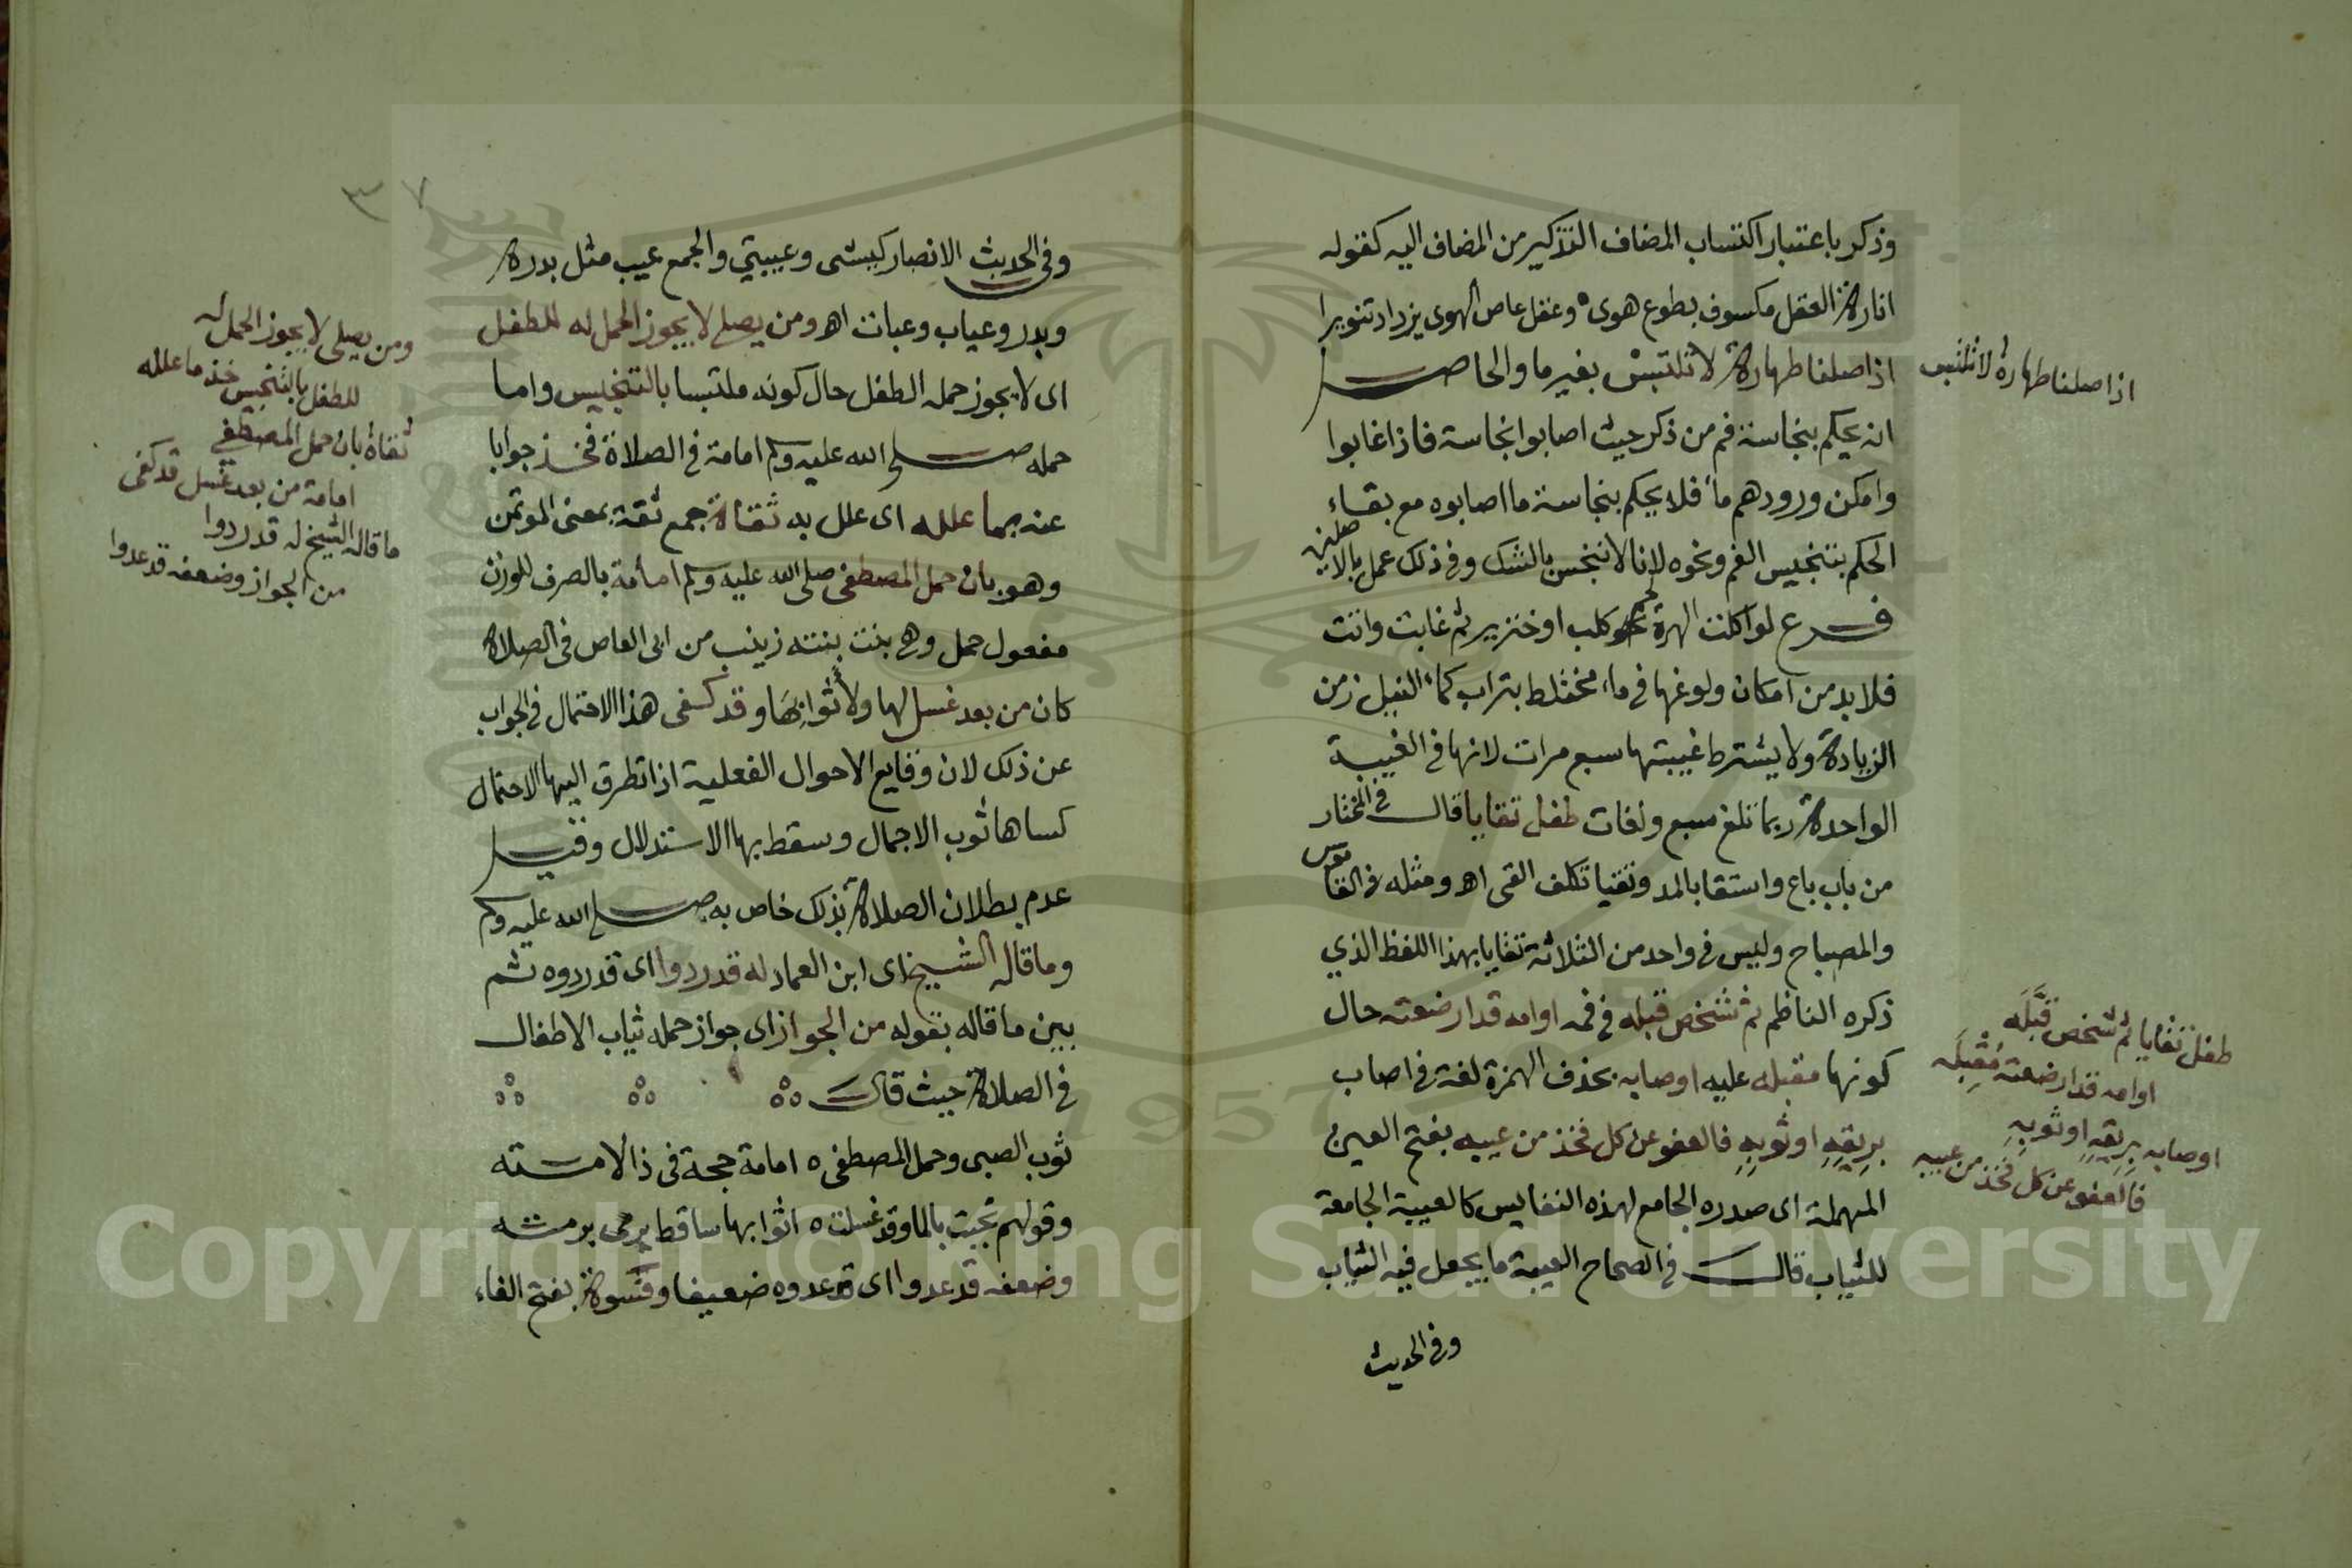 وذكر باعتبار اكتساب المضاف التذكير من المضاف اليه كقوله
انارة العقل مكسوف بطوع هوى ه وعقل عاص الهوى يزداد تنويرا
اذا صلنا طهارة لا تلتبس بغير ما والحاصل
انه يحكم بنجاسة فم من ذكر حيث اصابوا نجاسة فاذا غابوا
وامكن ورودهم ماء فلا يحكم بنجاسة ما اصابوه مع بقاء
الحكم بتنجيس الفم ونحوه لانا لا ننجس بالشك وفي ذلك عمل بالاصلين
فرع لو اكلت الهرة نحو كلب او خنزير ثم غابت واتت
فلا بد من امكان ولوغها في ماء مختلط بتراب كماء النيل زمن
الزيادة ولا يشترط غيبتها سبع مرات لانها في الغيبة
الواحدة ربما تلغ سبع ولغات طفل تقايا قال في المختار
من باب باع واستقا بالمد وتقيا تكلف القى اه ومثله في القاموس
والمصباح وليس في واحد من الثلاثة تقايا بهذا اللفظ الذي
ذكره الناظم ثم شخص قبله في فمه او امه قد ارضعته حال
كونها مقبله عليه او صابه بحذف الهمزة لغة في اصاب
بريقه او ثوبه فالعفو عن كل فخذ من عيبه بفتح العين
المهملة اى صدره الجامع لهذه النفايس كالعيبة الجامعة
للثياب قال في الصحاح العيبة ما يجعل فيه الثياب
وفي الحديث
اذا صلنا طهارة لا تلتبس
طفل تقايا ثم شخص قبله
او امه قد ارضعته مقبله
او صابه بريقه او ثوبه
فالعفو عن كل فخذ من عيبه
٣٧
وفي الحديث الانصار كبشى وعيبتي والجمع عيب مثل بدرة
وبدر وعياب وعبات اه ومن يصلي لا يجوز الحمل له للطفل
اى لا يجوز حمله الطفل حال كونه ملتبسا بالتنجيس واما
حمله صلى الله عليه وسلم امامة في الصلاة فخذ جوابا
عنه بما علله اى علل به ثقاة جمع ثقة بمعنى الموتمن
وهو بان حمل المصطفى صلى الله عليه وسلم امامة بالصرف للوزن
مفعول حمل وهي بنت بنته زينب من ابى العاص في الصلاة
كان من بعد غسل لها ولأثوابها وقد كفى هذا الاحتمال في الجواب
عن ذلك لان وقايع الاحوال الفعلية اذا تطرق اليها الاحتمال
كساها ثوب الاجمال وسقط بها الاستدلال وقيل
عدم بطلان الصلاة بذلك خاص به صلى الله عليه وسلم
وما قاله الشيخ اى ابن العماد له قد ردوا اى قد ردوه ثم
بين ما قاله بقوله من الجواز اى جواز حمله ثياب الاطفال
في الصلاة حيث قال
ثوب الصبى وحمل المصطفى ه امامة حجة في ذا لامسته
وقولهم نحيت بالما وقد غسلت ه اثوابها ساقط يرمى برمشه
وضعفه قد عدوا اى قد عدوه ضعيفا وفسوة بفتح الفاء
ومن يصلى لا يجوز الحمل له
للطفل بالتنجيس خذ ما علله
ثقاة بان حمل المصطفى
امامة من بعد غسل قد كفى
ما قاله الشيخ له قد ردوا
من الجواز وضعفه قد عدوا
1957
Copyright © King Saud University